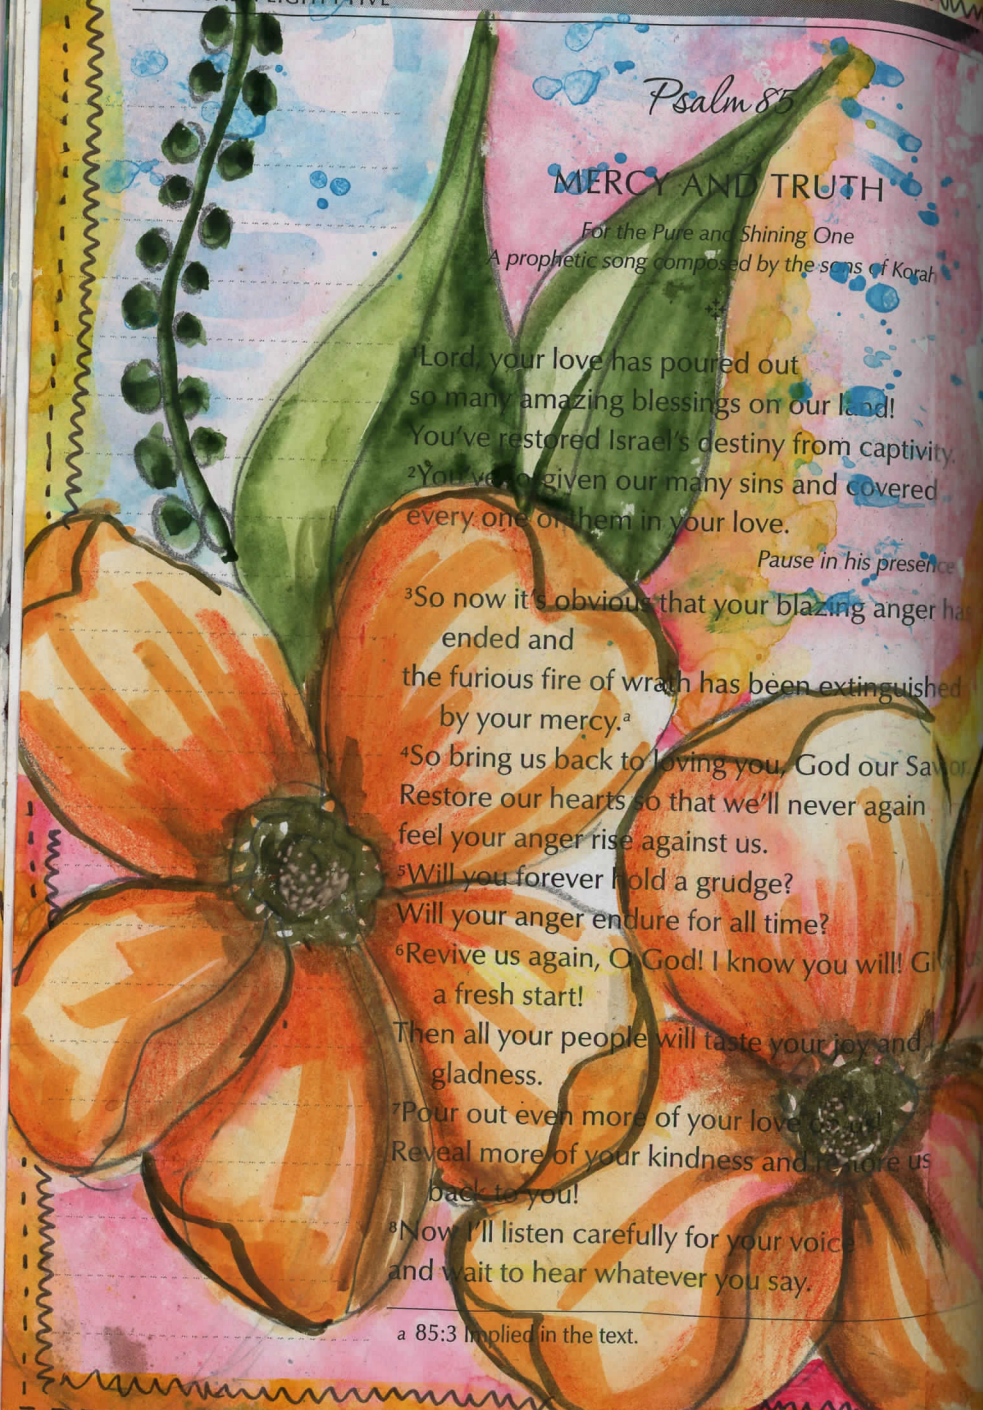 Psalm 85
MERCY AND TRUTH
For the Pure and Shining One
A prophetic song composed by the sons of Korah
¹Lord, your love has poured out
so many amazing blessings on our land!
You've restored Israel's destiny from captivity.
²You've forgiven our many sins and covered
every one of them in your love.
Pause in his presence
³So now it's obvious that your blazing anger has
ended and
the furious fire of wrath has been extinguished
by your mercy.ᵃ
⁴So bring us back to loving you, God our Savior.
Restore our hearts so that we'll never again
feel your anger rise against us.
⁵Will you forever hold a grudge?
Will your anger endure for all time?
⁶Revive us again, O God! I know you will! Give us
a fresh start!
Then all your people will taste your joy and
gladness.
⁷Pour out even more of your love on us!
Reveal more of your kindness and restore us
back to you!
⁸Now I'll listen carefully for your voice
and wait to hear whatever you say.
a 85:3 Implied in the text.